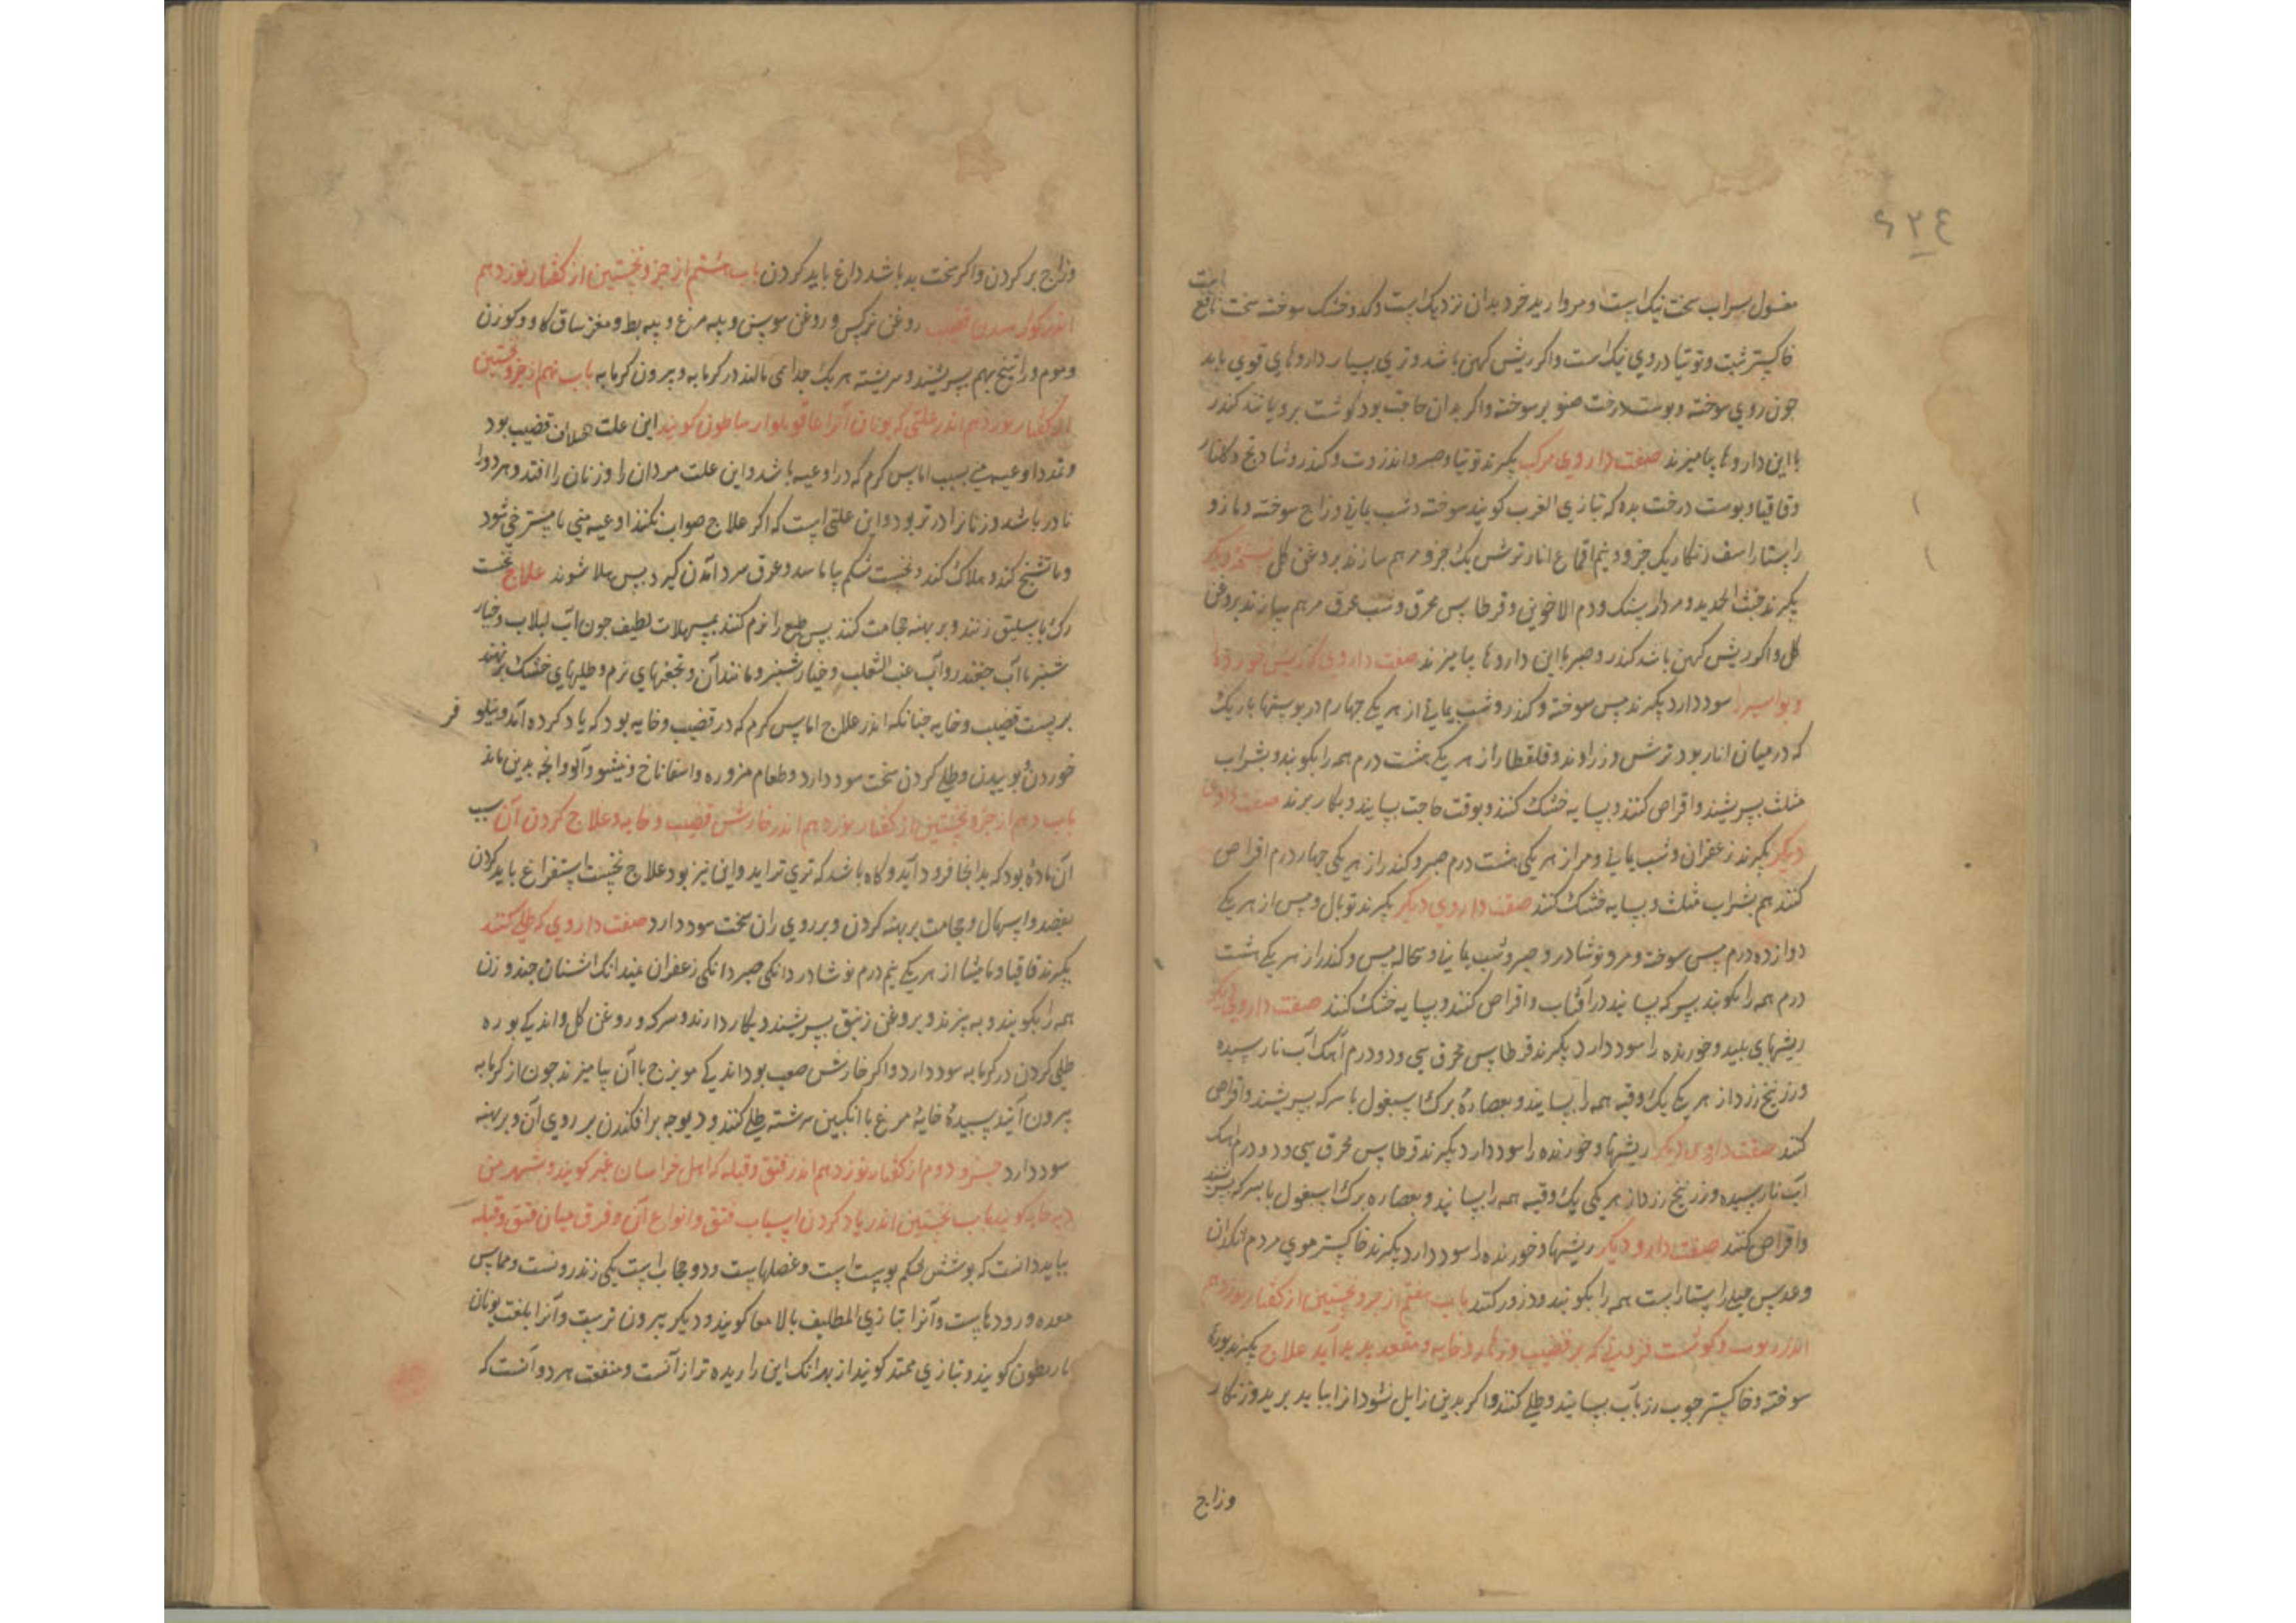 ٤٢٤
است
مغسول سراب سخت نیک است و مروارید خرد بدان نزدیک است و کدو خشک سوخته سخت نافع
خاکستر شبت و توتیا دروی نیک است و اکر ریش کهن باشد و تری بسیار داروهای قوی باید
جون روی سوخته و بوست درخت صنوبر سوخته و اکر بدان حاجت بود کوشت برویانند کندر
با این داروها بیامیزند صفت داروی مرکب بکیرند توتیا و صبر و انزروت و کندر و شادنج و کلنار
وقاقیا و بوست درخت بده که بتازی الغرب کویند سوخته و شب یمانی و زاج سوخته و مازو
راستاراست زنکار یک جزو و نیم اقماع انار ترش یک جزو مرهم سازند بروغن کل نسخه دیکر
بکیرند خبث الحدید و مردار سنک و دم الاخوین و قرطاس محرق و شب عرق مرهم سازند بروغن
کل و اکر ریش کهن باشد کندر و صبر با این داروها بیامیزند صفت داروی که ریش خورده
و بواسیر را سود دارد بکیرند مس سوخته و کندر و شب یمانی از هر یکی جهارم در بوستها باریک
که در میان انار بود ترش و زراوند و قلقطار از هر یکی هشت درم همه را بکوبند و بشراب
مثلث بسرشند و اقراص کنند و بسایه خشک کنند و بوقت حاجت بسایند و بکار برند صفت داروی
دیکر بکیرند زعفران و شب یمانی و مر از هر یکی هشت درم صبر و کندر از هر یکی جهار درم اقراص
کنند هم بشراب مثلث و بسایه خشک کنند صفت داروی دیکر بکیرند توبال مس از هر یکی
دوازده درم مس سوخته و مر و نوشادر و صبر و شب یمانی و سحاله مس و کندر از هر یکی هشت
درم همه را بکوبند بسرکه بسایند در آفتاب و اقراص کنند و بسایه خشک کنند صفت داروی دیکر
ریشهای بلید و خورنده را سود دارد بکیرند قرطاس محرق سی و دو درم آهک آب نارسیده
و زرنیخ زرد از هر یکی یک وقیه همه را بسایند و بعصارهٔ برک اسبغول با سرکه بسرشند و اقراص
کنند صفت داروی دیکر ریشها و خورنده را سود دارد بکیرند قرطاس محرق سی و دو درم آهک
آب نارسیده و زرنیخ زرد از هر یکی یک وقیه همه را بسایند و بعصاره برک اسبغول با سرکه بسرشند
و اقراص کنند صفت دارو دیکر ریشها و خورنده را سود دارد بکیرند خاکستر موی مردم
و عدس راستاراست همه را بکوبند و ذرور کنند باب هفتم از جزو نخستین از کفتار نوزدهم
اندر کوشت فزونی که بر قضیب و خایه و مقعد بدید آید علاج بکیرند بورهٔ
سوخته و خاکستر جوب رز بآب بسایند و طلی کنند و اکر بدین زایل نشود از بباید برید و زنکار
وزاج
وزاج بر کردن و اکر سخت بد باشد داغ باید کردن باب هشتم از جزو نخستین از کفتار نوزدهم
اندر کوژ شدن قضیب روغن نرکس و روغن سوسن و بیه مرغ و بیه بط و مغز ساق کاو و کوزن
و موم و راتینج بهم بسرشند و سرشته هر یک جدا می مالند در کرمابه و بیرون کرمابه باب نهم از جزو نخستین
از کفتار نوزدهم اندر علتی که یونان آنرا کویند این علت قضیب بود
و تمدد اوعیه منی بسبب اماس کرم که در اوعیه باشد و این علت مردان را و زنان را افتد و هر دو را
نادر باشد و زنانرا نادرتر بود و این علتی است که اکر علاج صواب نکنند اوعیه منی یا مسترخی شود
و یا تشنج کند و هلاک کند و نخست شکم بیاماسد و عرق سرد آمدن کیرد بس هلاک شوند علاج نخست
رک باسلیق زنند و بر بهنه حجامت کنند بس طبع را نرم کنند بمسهلات لطیف جون آب لبلاب و خیار
شنبر با آب جغندر و آب عنب الثعلب و خیارشنبر و مانند آن و نجفهای نرم و طلیهای خشک برنهند
بر بشت قضیب و خایه جنانکه اندر علاج اماس کرم که در قضیب و خایه بود که یاد کرده آمد و نیلوفر
خوردن و بوییدن و طلی کردن سخت سود دارد و طعام مزوره و اسفاناخ و نیشو و آلو و انجه بدین ماند
باب دهم از جزو نخستین از کفتار نوزدهم اندر خارش قضیب و خایه و علاج کردن آن سبب
آن مادهٔ بود که بدانجا فرود آید و کاه باشد که تری تراید و این نیز بود علاج نخست استفراغ باید کردن
بفصد و اسهال و حجامت بر بهنه کردن و بر روی ران سخت سود دارد صفت داروی که طلی کنند
بکیرند قاقیا و مامیثا از هر یکی نیم درم نوشادر دانکی صبر دانکی زعفران نیم دانک اشنان جند وزن
همه را بکوبند و به بزند و بروغن زنبق بسرشند و بکار دارند و سرکه و روغن کل و اندکی بوره
طلی کردن در کرمابه سود دارد و اکر خارش صعب بود اندکی مویزج با آن بیامیزند جون از کرمابه
بیرون آیند سبیدهٔ خایهٔ مرغ با انکبین سرشته طلی کنند و دیوجه برافکندن بر روی آن و بر بهنه
سود دارد جزو دوم از کفتار نوزدهم اندر فتق و قیله که اهل خراسان غر کویند و بشهر من
دبه خایه کویند باب نخستین اندر یاد کردن اسباب فتق و انواع آن و فرق میان فتق و قیله
بباید دانست که بوشش شکم بوست است و عضلهاست و دو حجاب است یکی زندرونست و مماس
معده و رودهاست و آنرا بتازی المطلیف بالامعا کویند و دیکر بیرون ترست و آنرا بلغت یونان
باریطون کویند و بتازی ممتد کویند از بهر آنک این را دیده تر از آنست و منفعت هر دو آنست که